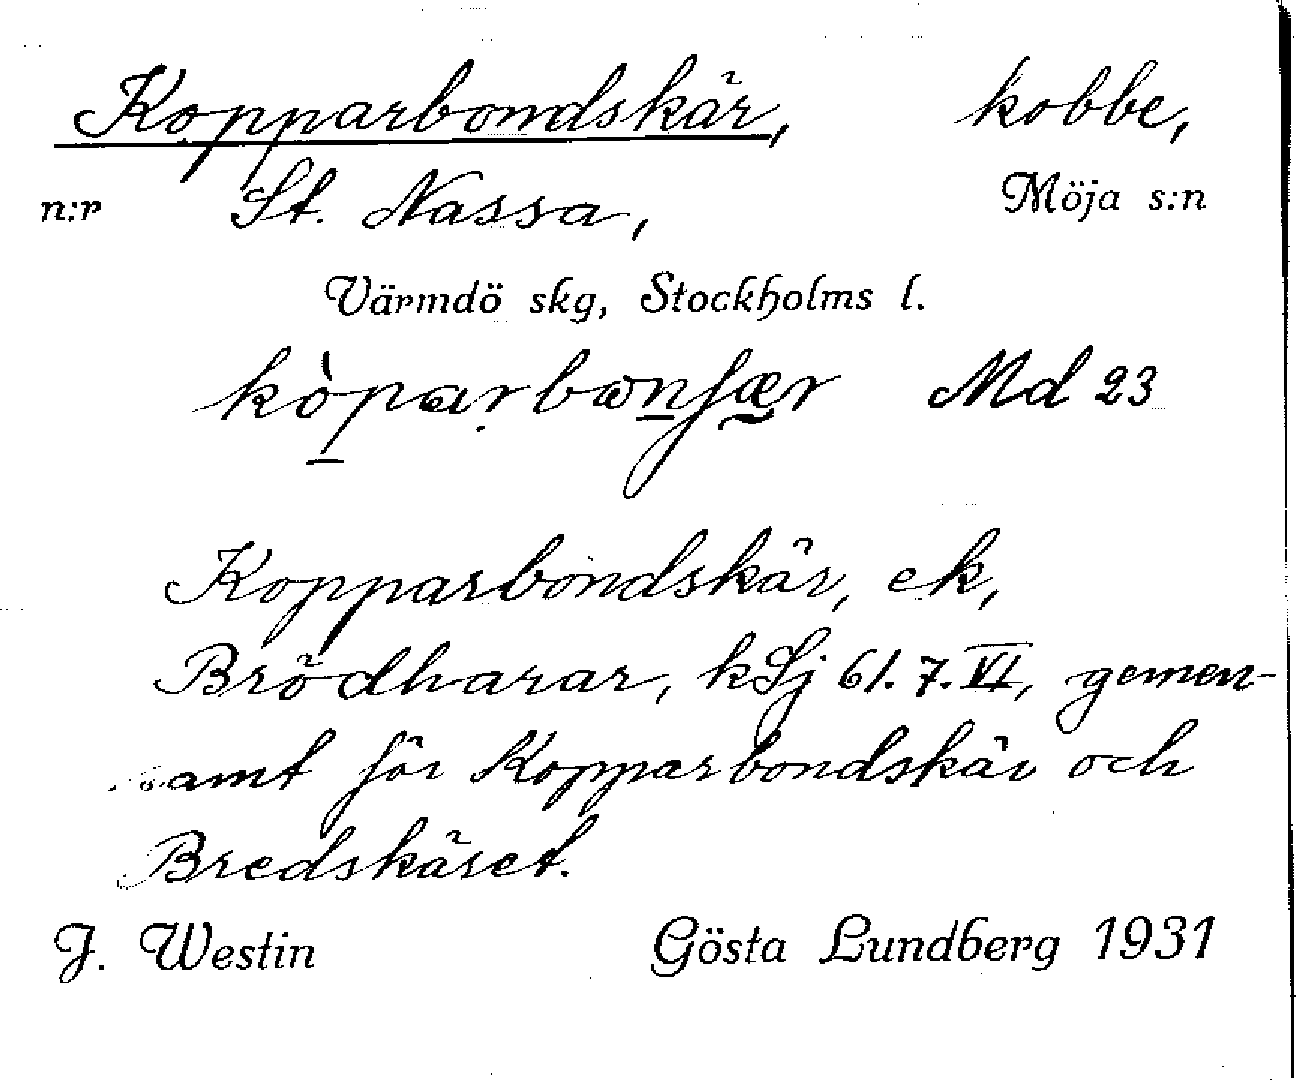 Kopparbondskär, kobbe,
n:r St. Nassa, Möja s:n
Värmdö skg, Stockholms l.
Md 23
Kopparbondskär, ek,
Brödharar, kSj 61. 7. VI, gemen-
samt för Kopparbondskär och
Bredskäret.
J. Westin Gösta Lundberg 1931